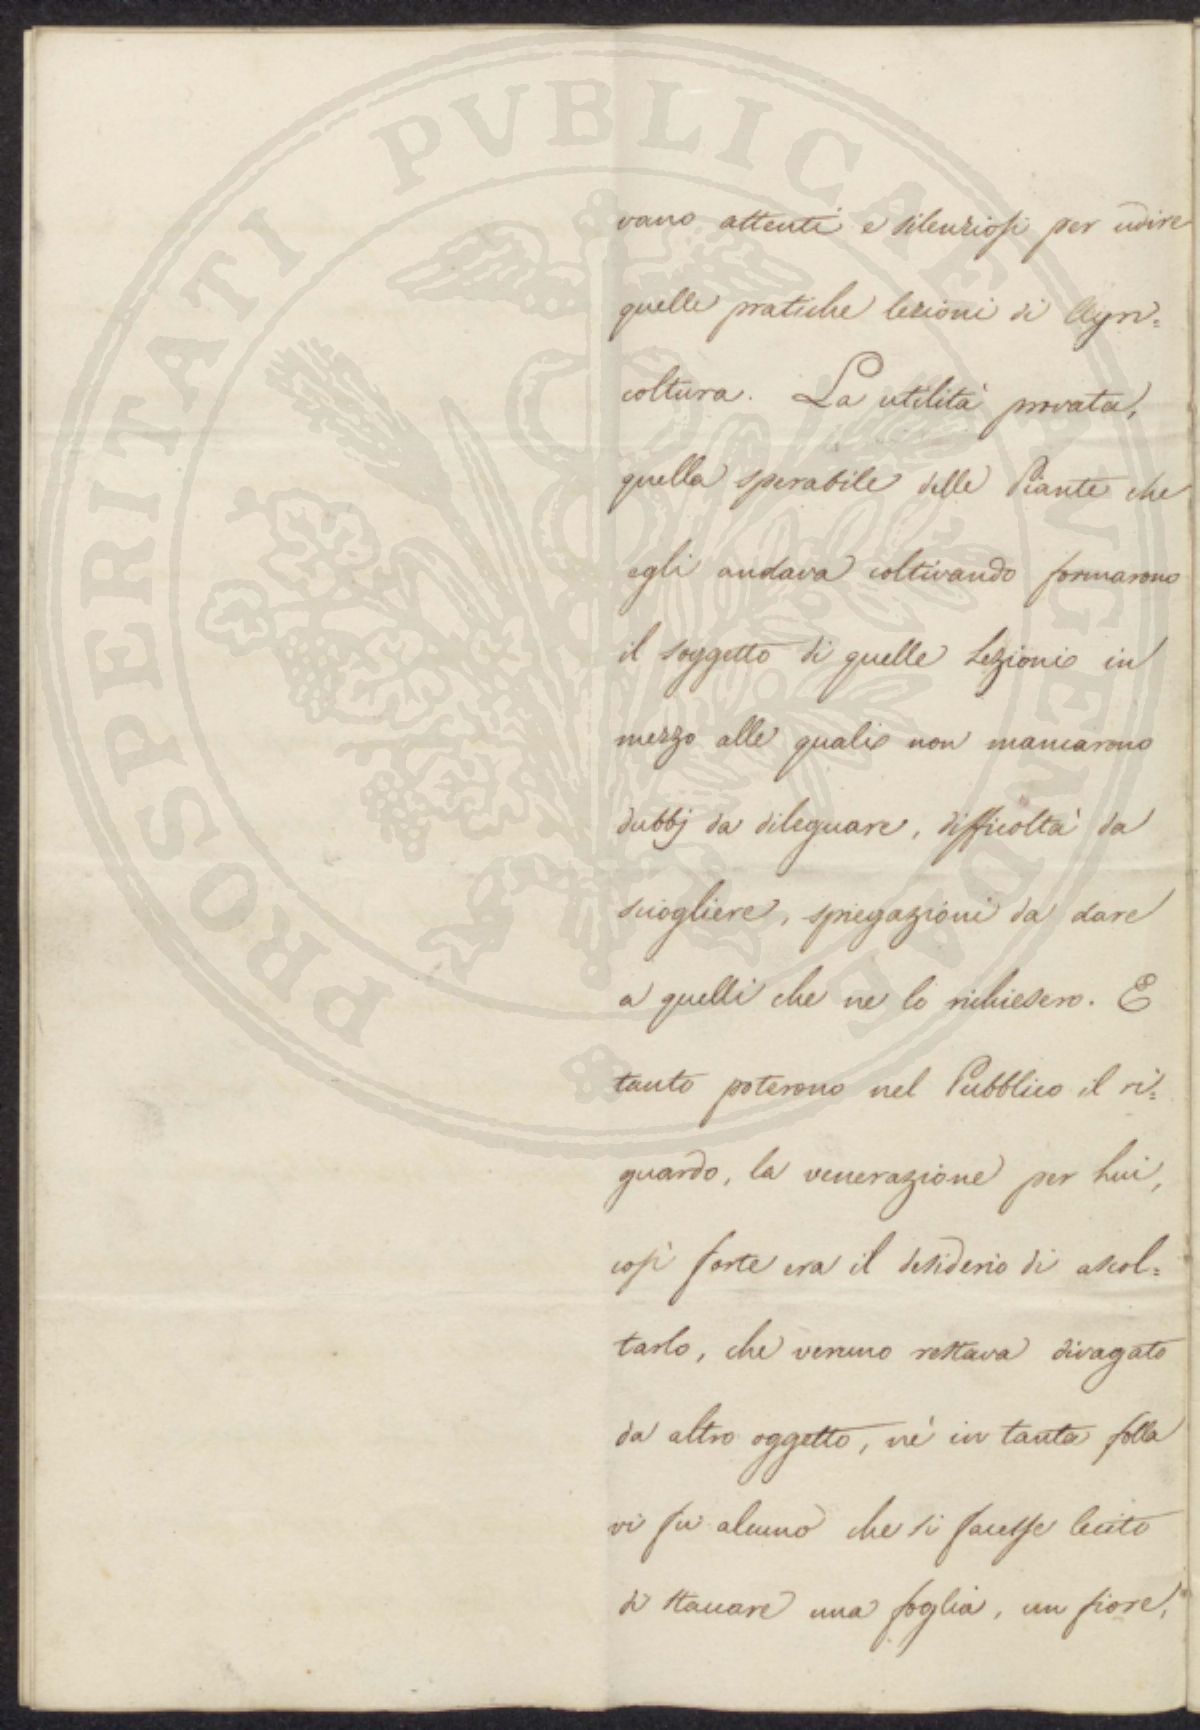 PROSPERITATI PUBLICAE AUGENDAE
vano attenti e silenziosi per udire
quelle pratiche lezioni di Agri=
coltura. La utilità provata,
quella sperabile delle Piante che
egli andava coltivando formarono
il soggetto di quelle Lezioni in
mezzo alle quali non mancarono
dubbj da dileguare, difficoltà da
sciogliere, spiegazioni da dare
a quelli che ne lo richiesero. E
tanto poterono nel Pubblico il ri=
guardo, la venerazione per Lui,
così forte era il desiderio di ascol=
tarlo, che veruno restava divagato
da altro oggetto, nè in tanta folla
vi fu alcuno che si facesse lecito
di staccare una foglia, un fiore,